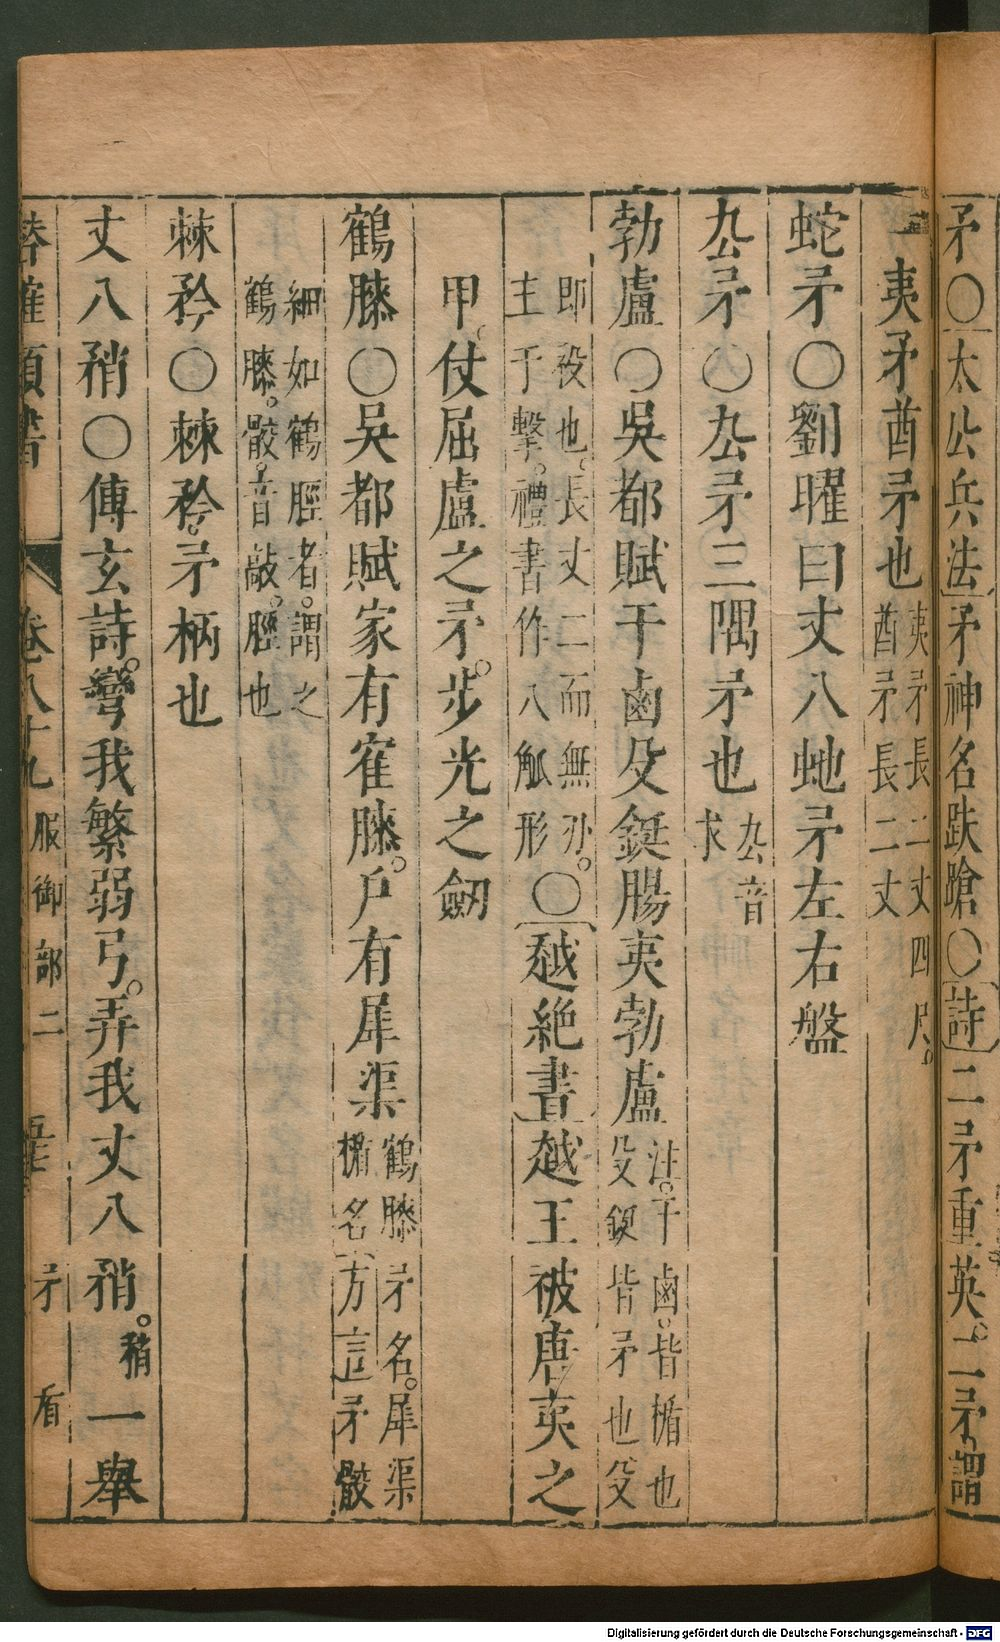 矛〇太公兵法矛神名趺蹌〇詩二矛重英。二矛謂
夷矛酋矛也夷矛長二丈四尺。酋矛長二丈
蛇矛〇劉曜曰丈八虵矛左右盤
厹矛〇厹矛三隅矛也厹音求
勃盧〇吳都賦干鹵殳鋋腸夷勃盧注。干鹵。皆楯也殳鋋皆矛也殳
即祋也。長丈二而無刃。主于擊。禮書作八觚形〇越絕書越王被唐夷之
甲。仗屈盧之矛。步光之劒
鶴膝〇吳都賦家有寉膝。戶有犀渠鶴膝矛名。犀渠楯名方言矛骹
細如鶴脛者。謂之鶴膝。骹。音敲。脛也
棘矜〇棘矜。矛柄也
丈八矟〇傅玄詩。彎我繁弱弓。弄我丈八矟。矟一舉
卷八十九 服御部二 矛 盾
Digitalisierung gefördert durch die Deutsche Forschungsgemeinschaft - DFG